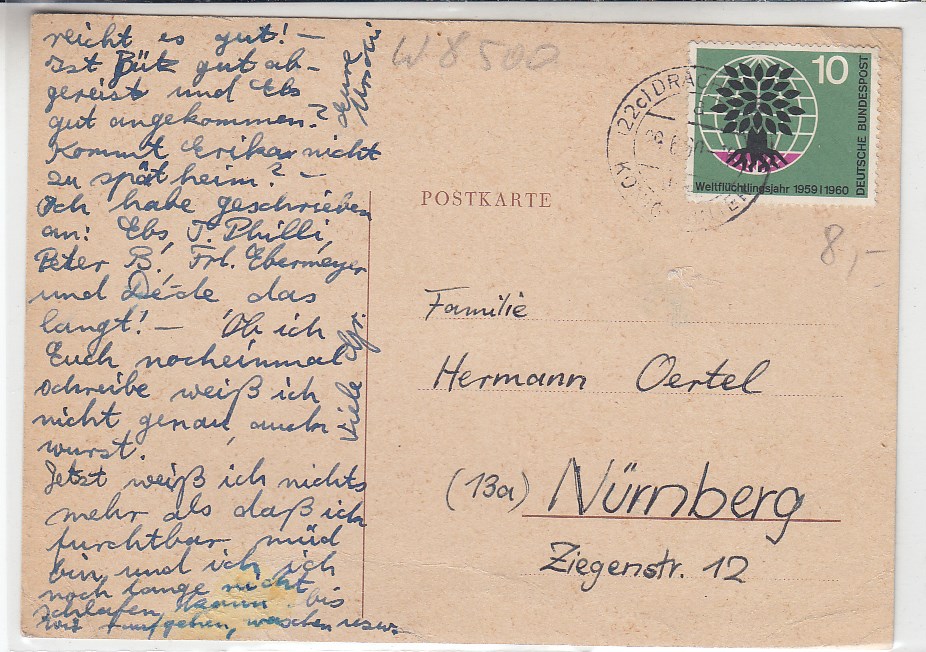 reicht es gut! –
Ist Bütz gut ab-
gereist und Ebs
gut angekommen?
Kommt Erika nicht
zu spät heim? –
Ich habe geschrieben
an: Ebs, T. Philli,
Peter B., Frl. Ebermeyer
und Dé-de das
langt! – Ob ich
Euch nocheinmal
schreibe weiß ich
nicht genau, auch
wurst.
Jetzt weiß ich nichts
mehr als daß ich
furchtbar müd
bin und ich ich
noch lange nicht
schlafen kann bis
wir aufgehen, waschen usw.
Viele Gr.
Eure
W 8500
(22c) DRAC
KÖNIG
10
DEUTSCHE BUNDESPOST
Weltflüchtlingsjahr 1959|1960
8,-
POSTKARTE
Familie
Hermann Oertel
(13a) Nürnberg
Ziegenstr. 12